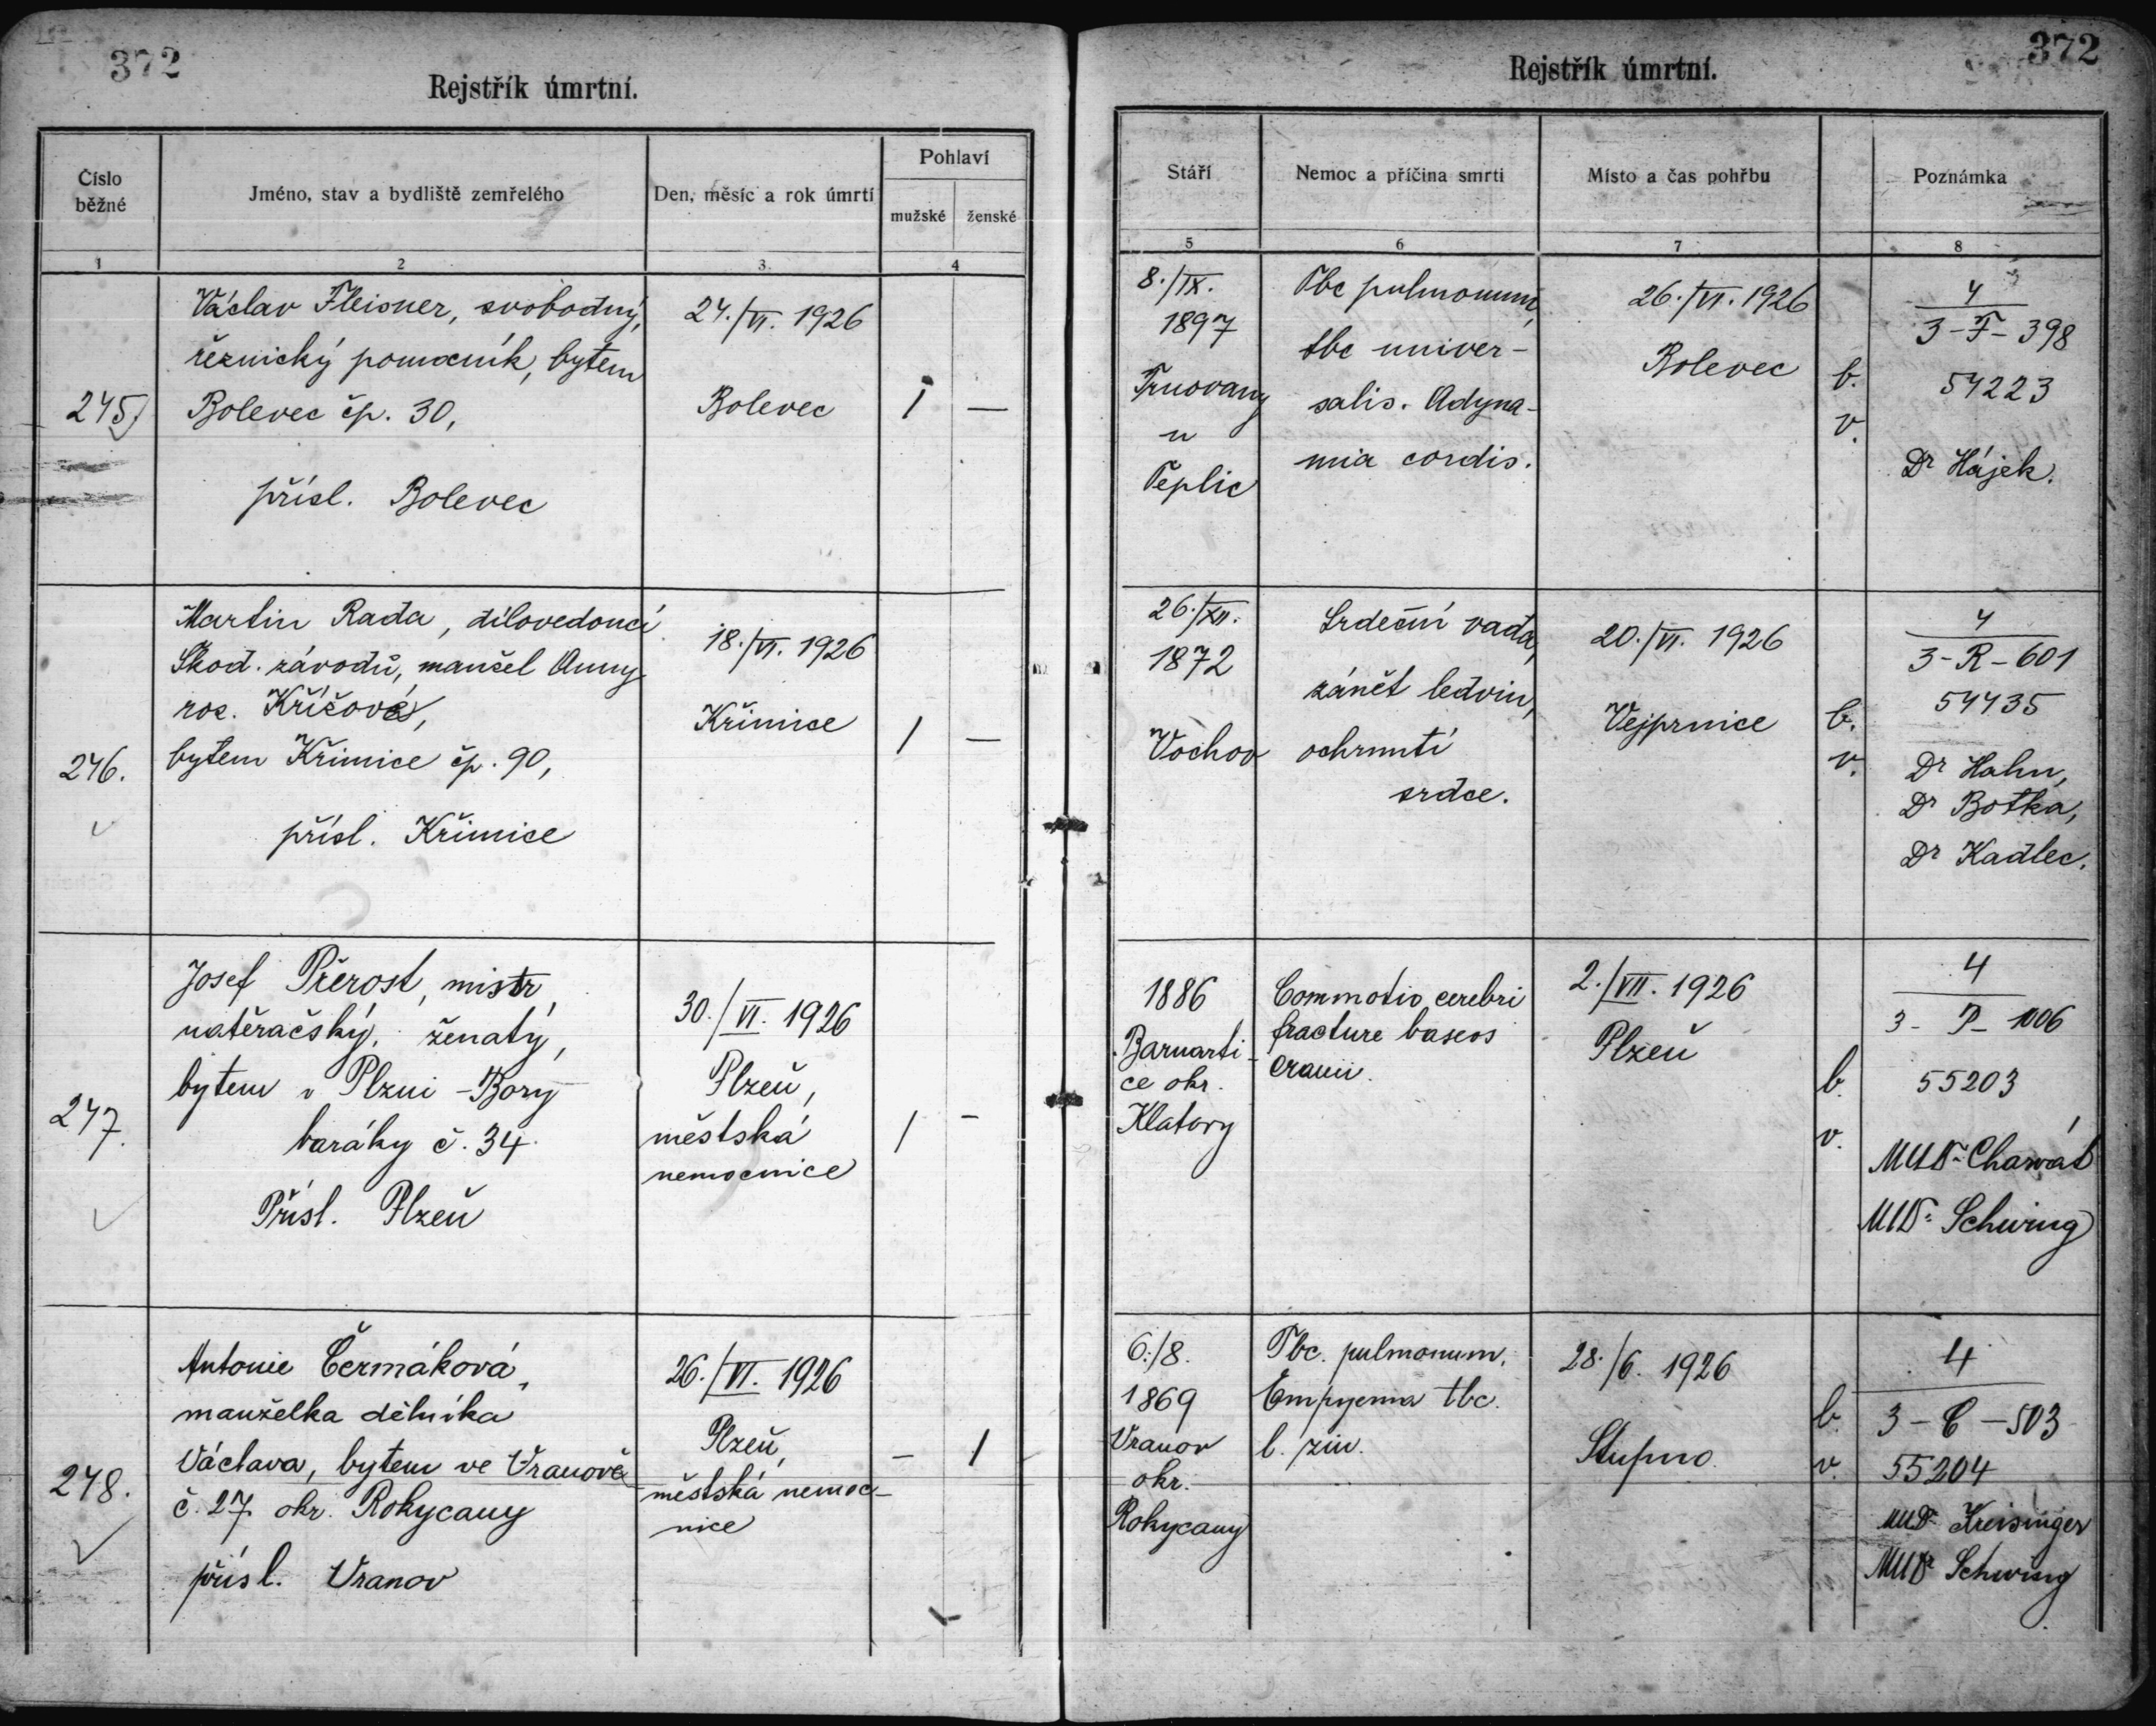 372
Rejstřík úmrtní.
Číslo běžné
Jméno, stav a bydliště zemřelého
Den, měsíc a rok úmrtí
Pohlaví
mužské
ženské
1
2
3
4
Václav Fleisner, svobodný,
řeznický pomocník, bytem
245)
Bolevec čp. 30,
přísl. Bolevec
24./VI. 1926
Bolevec
1
—
Martin Rada, dílovedoucí
Škod. závodů, manžel Anny
roz. Křížové,
246.
bytem Křimice čp. 90,
přísl. Křimice
18./VI. 1926
Křimice
1
—
Josef Přerost, mistr
natěračský, ženatý,
bytem v Plzni - Bory
247.
baráky č. 34.
Přísl. Plzeň
30./VI. 1926
Plzeň,
městská
nemocnice
1
-
Antonie Čermáková,
manželka dělníka
Václava, bytem ve Vranově
248.
č. 27 okr. Rokycany
přísl. Vranov
26./VI. 1926
Plzeň,
městská nemoc-
nice
-
1
372
Rejstřík úmrtní.
Stáří
Nemoc a příčina smrti
Místo a čas pohřbu
Poznámka
5
6
7
8
8./IX.
1897
Trnovany
u
Teplic
Tbc pulmonum,
tbc univer-
salis. Adyna-
mia cordis.
26./VI. 1926
Bolevec
b.
v.
4
3-F-398
54223
Dr Hájek.
26./XII.
1872
Vochov
Srdeční vada,
zánět ledvin,
ochrnutí
srdce.
20./VI. 1926
Vejprnice
b.
v.
4
3-R-601
54435
Dr Hahn,
Dr Botka,
Dr Kadlec.
1886
Barnarti-
ce okr.
Klatovy
Commotio cerebri
fracture baseos
cranii.
2./VII. 1926
Plzeň
b.
v.
4
3- P- 1006
55203
MUDr Charvát
MUDr Schwing
6./8.
1869
Vranov
okr.
Rokycany
Tbc. pulmonum.
Empyema tbc.
l. sin.
28./6. 1926
Stupno
b.
v.
4
3-C-503
55204
MUDr Kreisinger
MUDr Schwing